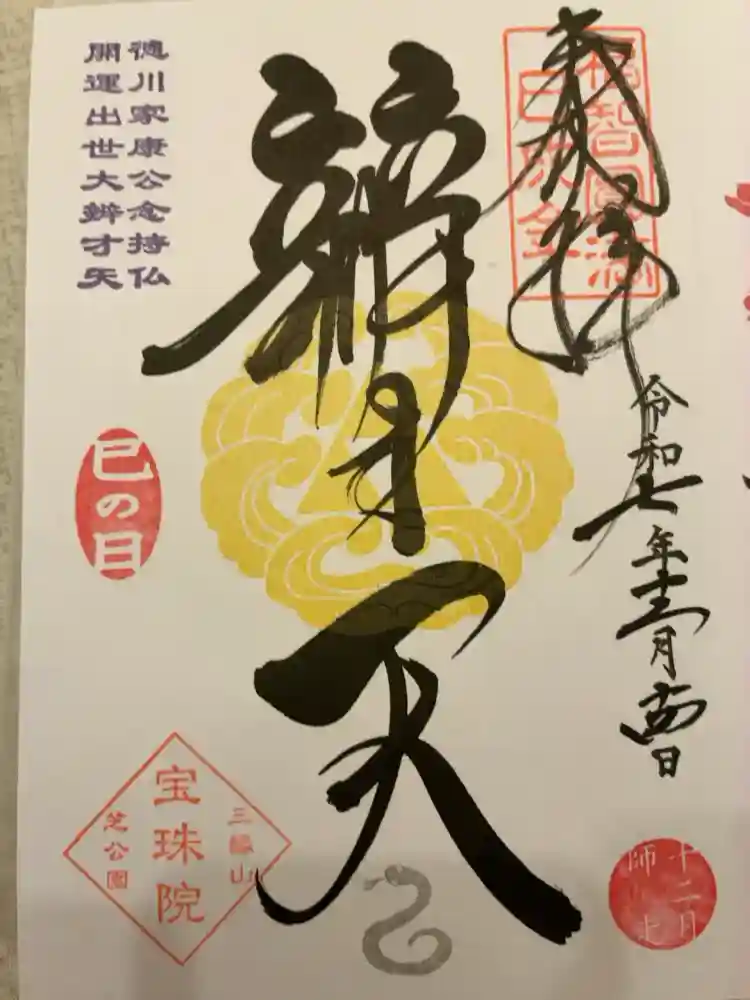 奉拝
福智圓満
令和七年十二月
辨才天
徳川家康公念持仏
開運出世大辨才天
巳の日
三縁山
宝珠院
芝公園
十二月
師走